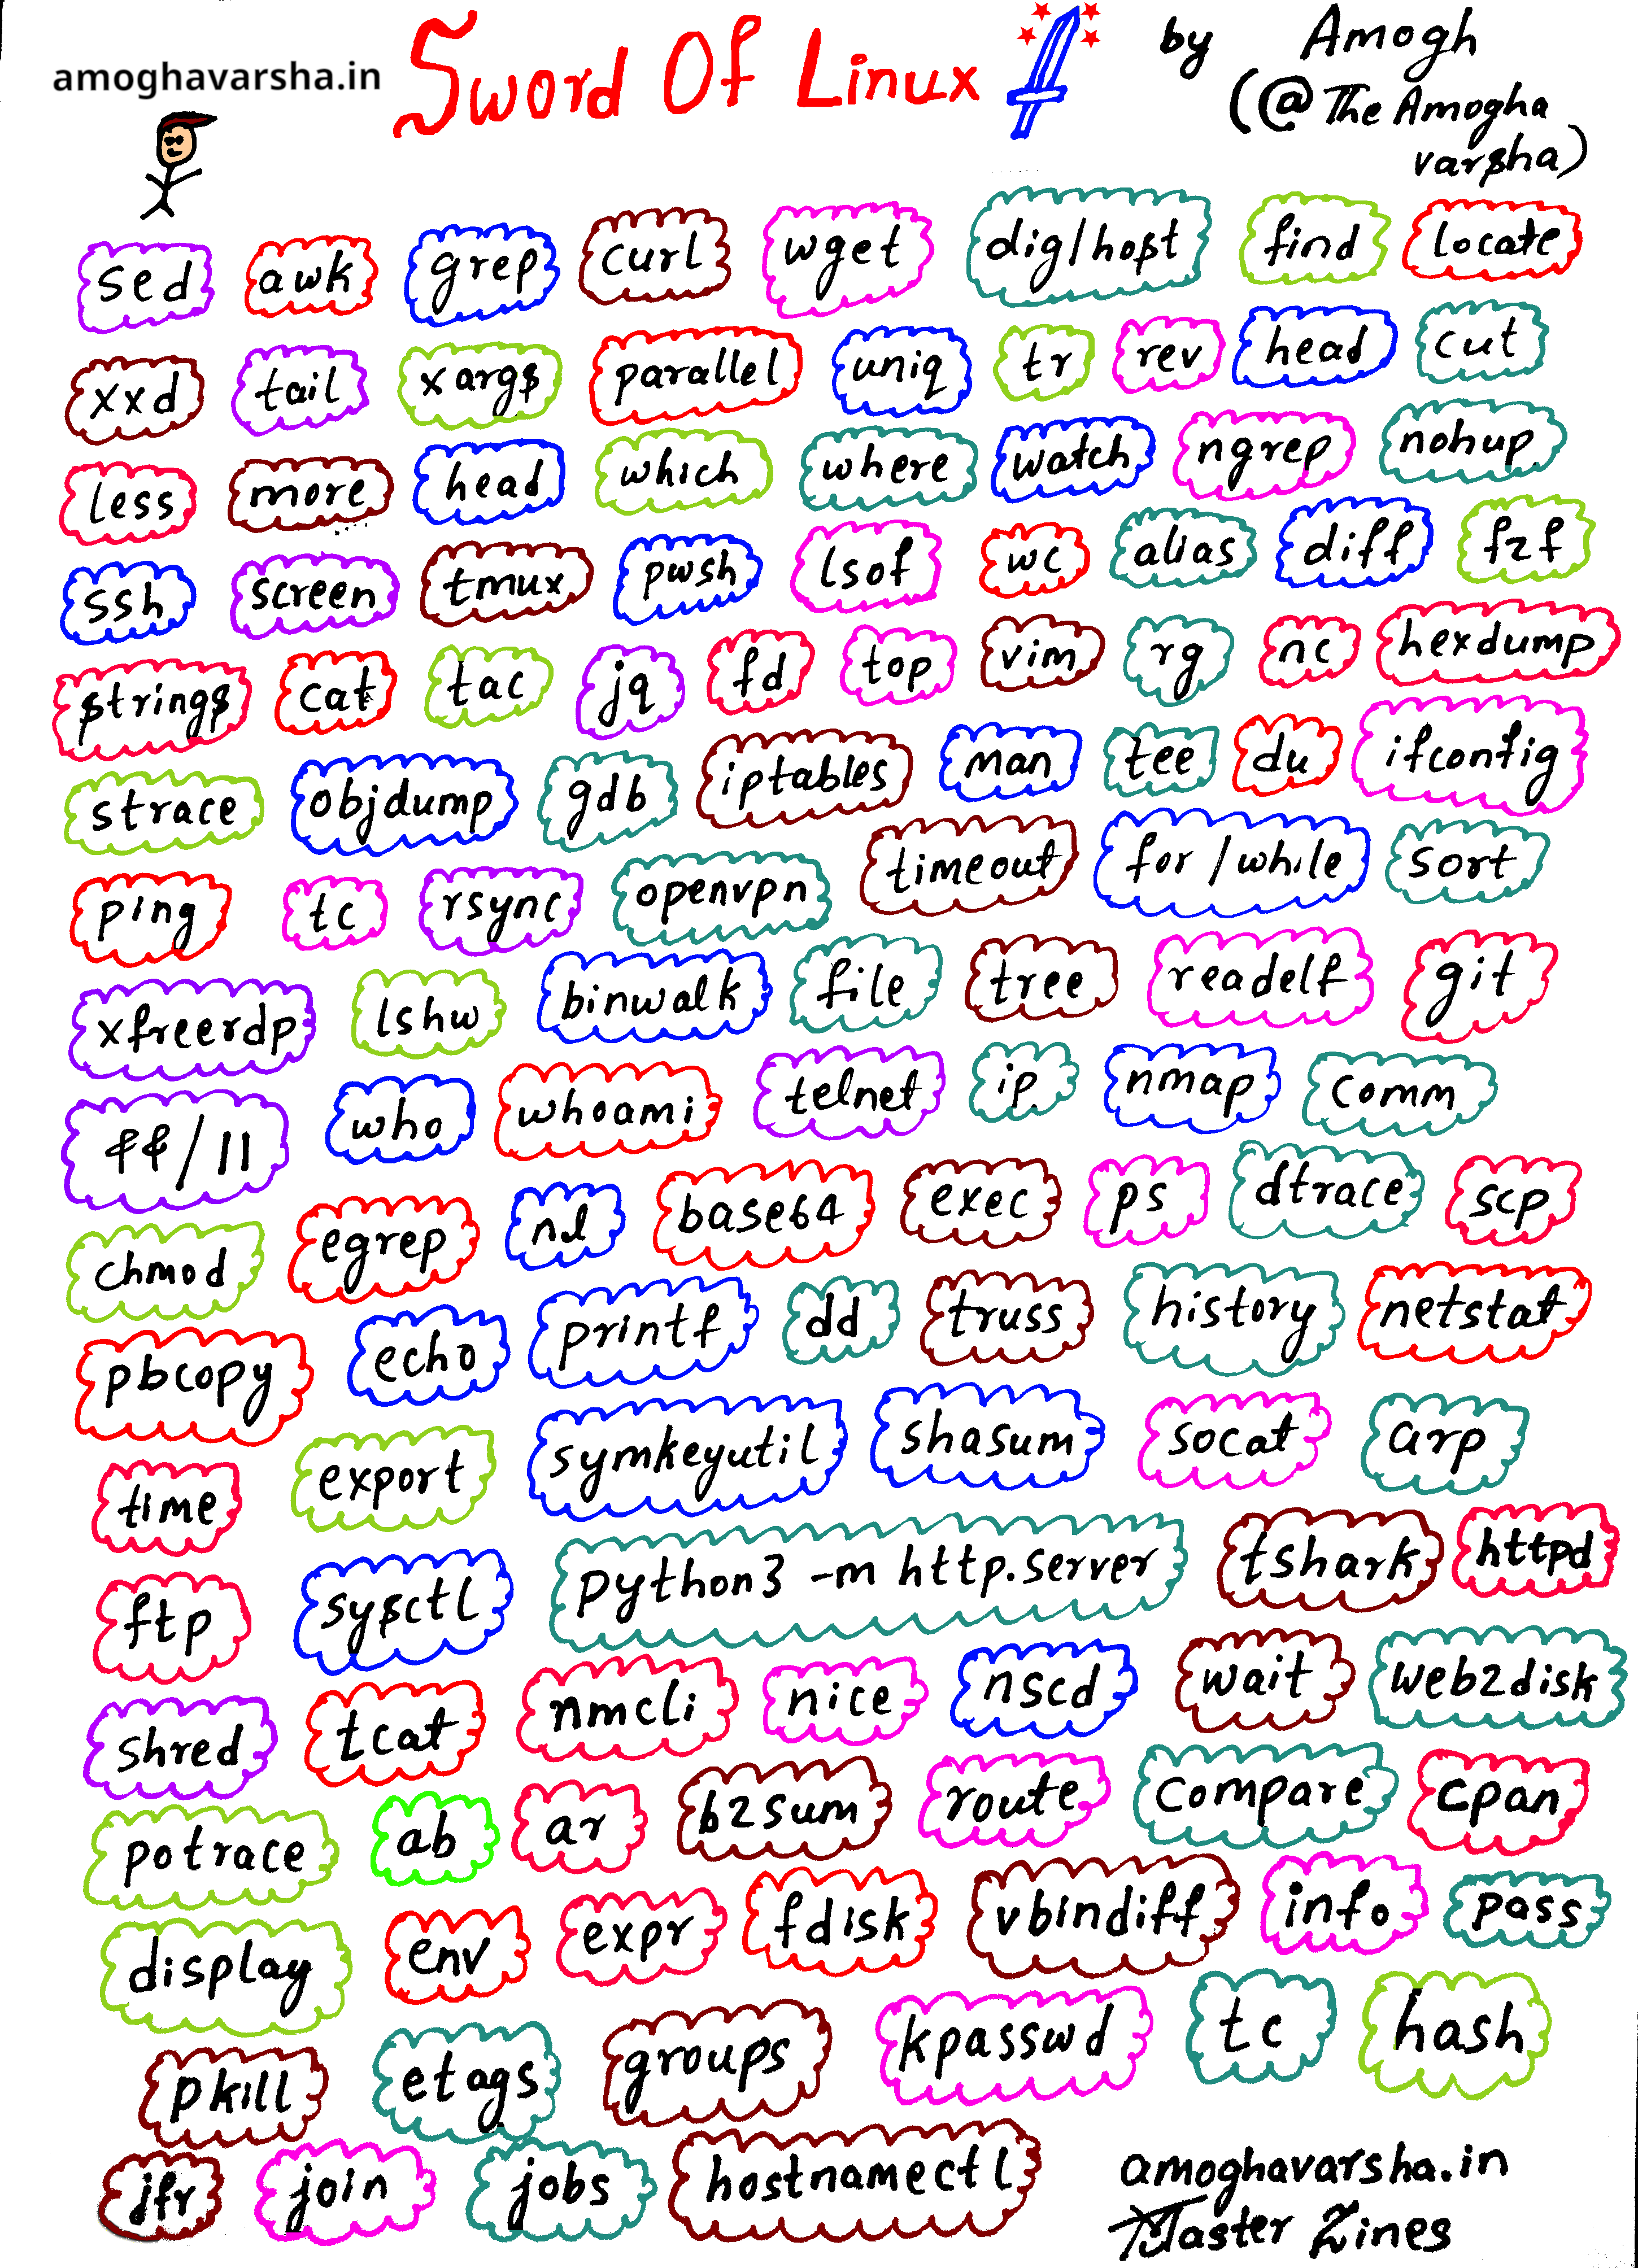 amoghavarsha.in
Sword Of Linux
by Amogh
(@TheAmogha
varsha)
sed awk grep curl wget dig/host find locate
xxd tail xargs parallel uniq tr rev head cut
less more head which where watch ngrep nohup
ssh screen tmux pwsh lsof wc alias diff fzf
strings cat tac jq fd top vim rg nc hexdump
strace objdump gdb iptables man tee du ifconfig
ping tc rsync openvpn timeout for/while sort
xfreerdp lshw binwalk file tree readelf git
&&/|| who whoami telnet ip nmap comm
chmod egrep nl base64 exec ps dtrace scp
pbcopy echo printf dd truss history netstat
time export symkeyutil shasum socat arp
ftp sysctl python3 -m http.server tshark httpd
shred tcat nmcli nice nscd wait web2disk
potrace ab ar b2sum route compare cpan
display env expr fdisk vbindiff info pass
pkill etags groups kpasswd tc hash
jfr join jobs hostnamectl
amoghavarsha.in
Master Zines